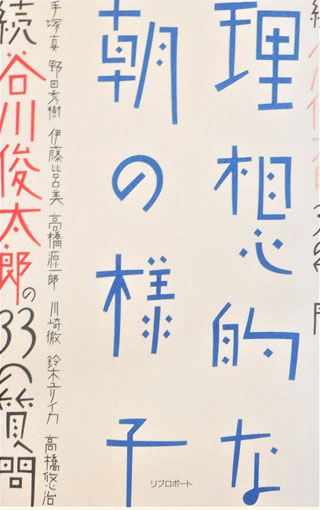 理想的な
朝の様子
手塚真 野田秀樹 伊藤比呂美 高橋源一郎 川崎徹 鈴木ユリイカ 高橋悠治
続・谷川俊太郎の33の質問
リブロポート